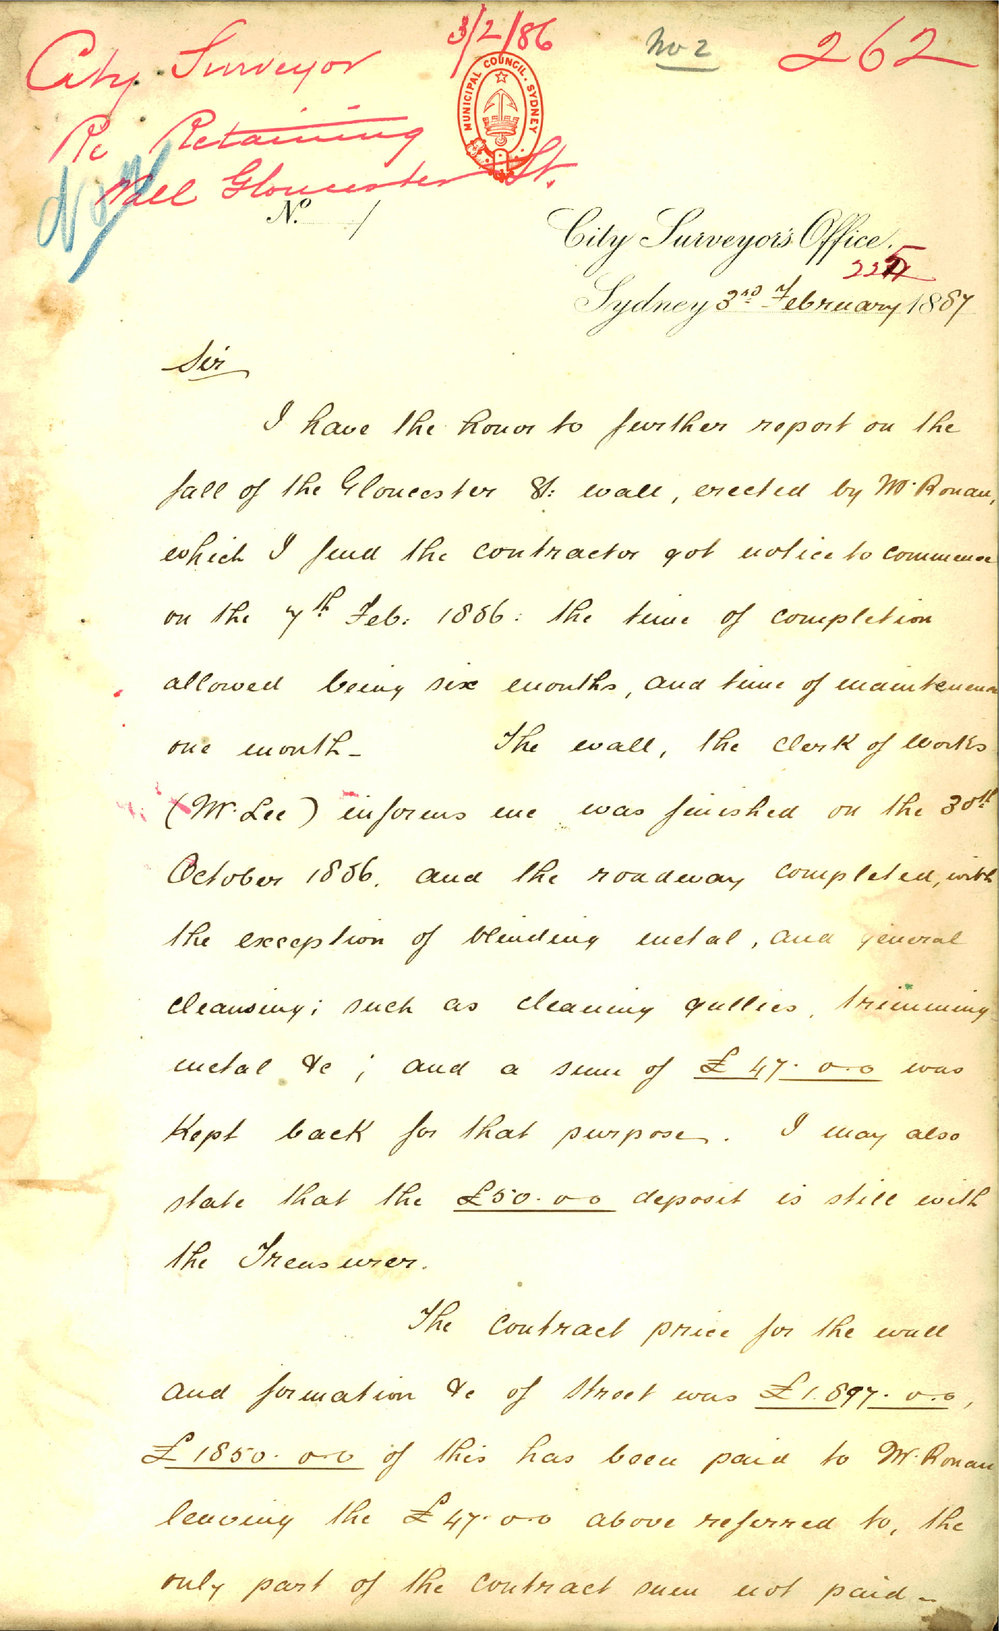 3/2/86
No 2
262
City Surveyor
Re Retaining
Wall Gloucester St.
MUNICIPAL COUNCIL. SYDNEY
No. 1
City Surveyor's Office.
Sydney 3rd February 1887
Sir
I have the honor to further report on the
fall of the Gloucester St: wall, erected by Mr. Ronan,
which I find the contractor got notice to commence
on the 7th Feb: 1886: the time of completion
allowed being six months, and time of maintenance
one month_ The wall, the clerk of works
(Mr. Lee) informs me was finished on the 30th
October 1886. and the roadway completed, with
the exception of blinding metal, and general
cleansing; such as cleaning gullies, trimming
metal &c; and a sum of £47.0.0 was
kept back for that purpose. I may also
state that the £50.0.0 deposit is still with
the Treasurer.
The contract price for the wall
and formation &c of street was £1.897.0.0,
£1850.0.0 of this has been paid to Mr. Ronan
leaving the £47.0.0 above referred to, the
only part of the contract sum not paid_